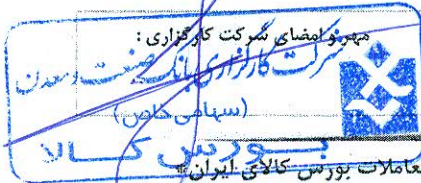 مهر و امضای شرکت کارگزاری :
شرکت کارگزاری بانک صنعت و معدن
(سهامی خاص)
بورس کالا
معاملات بورس کالای ایران*